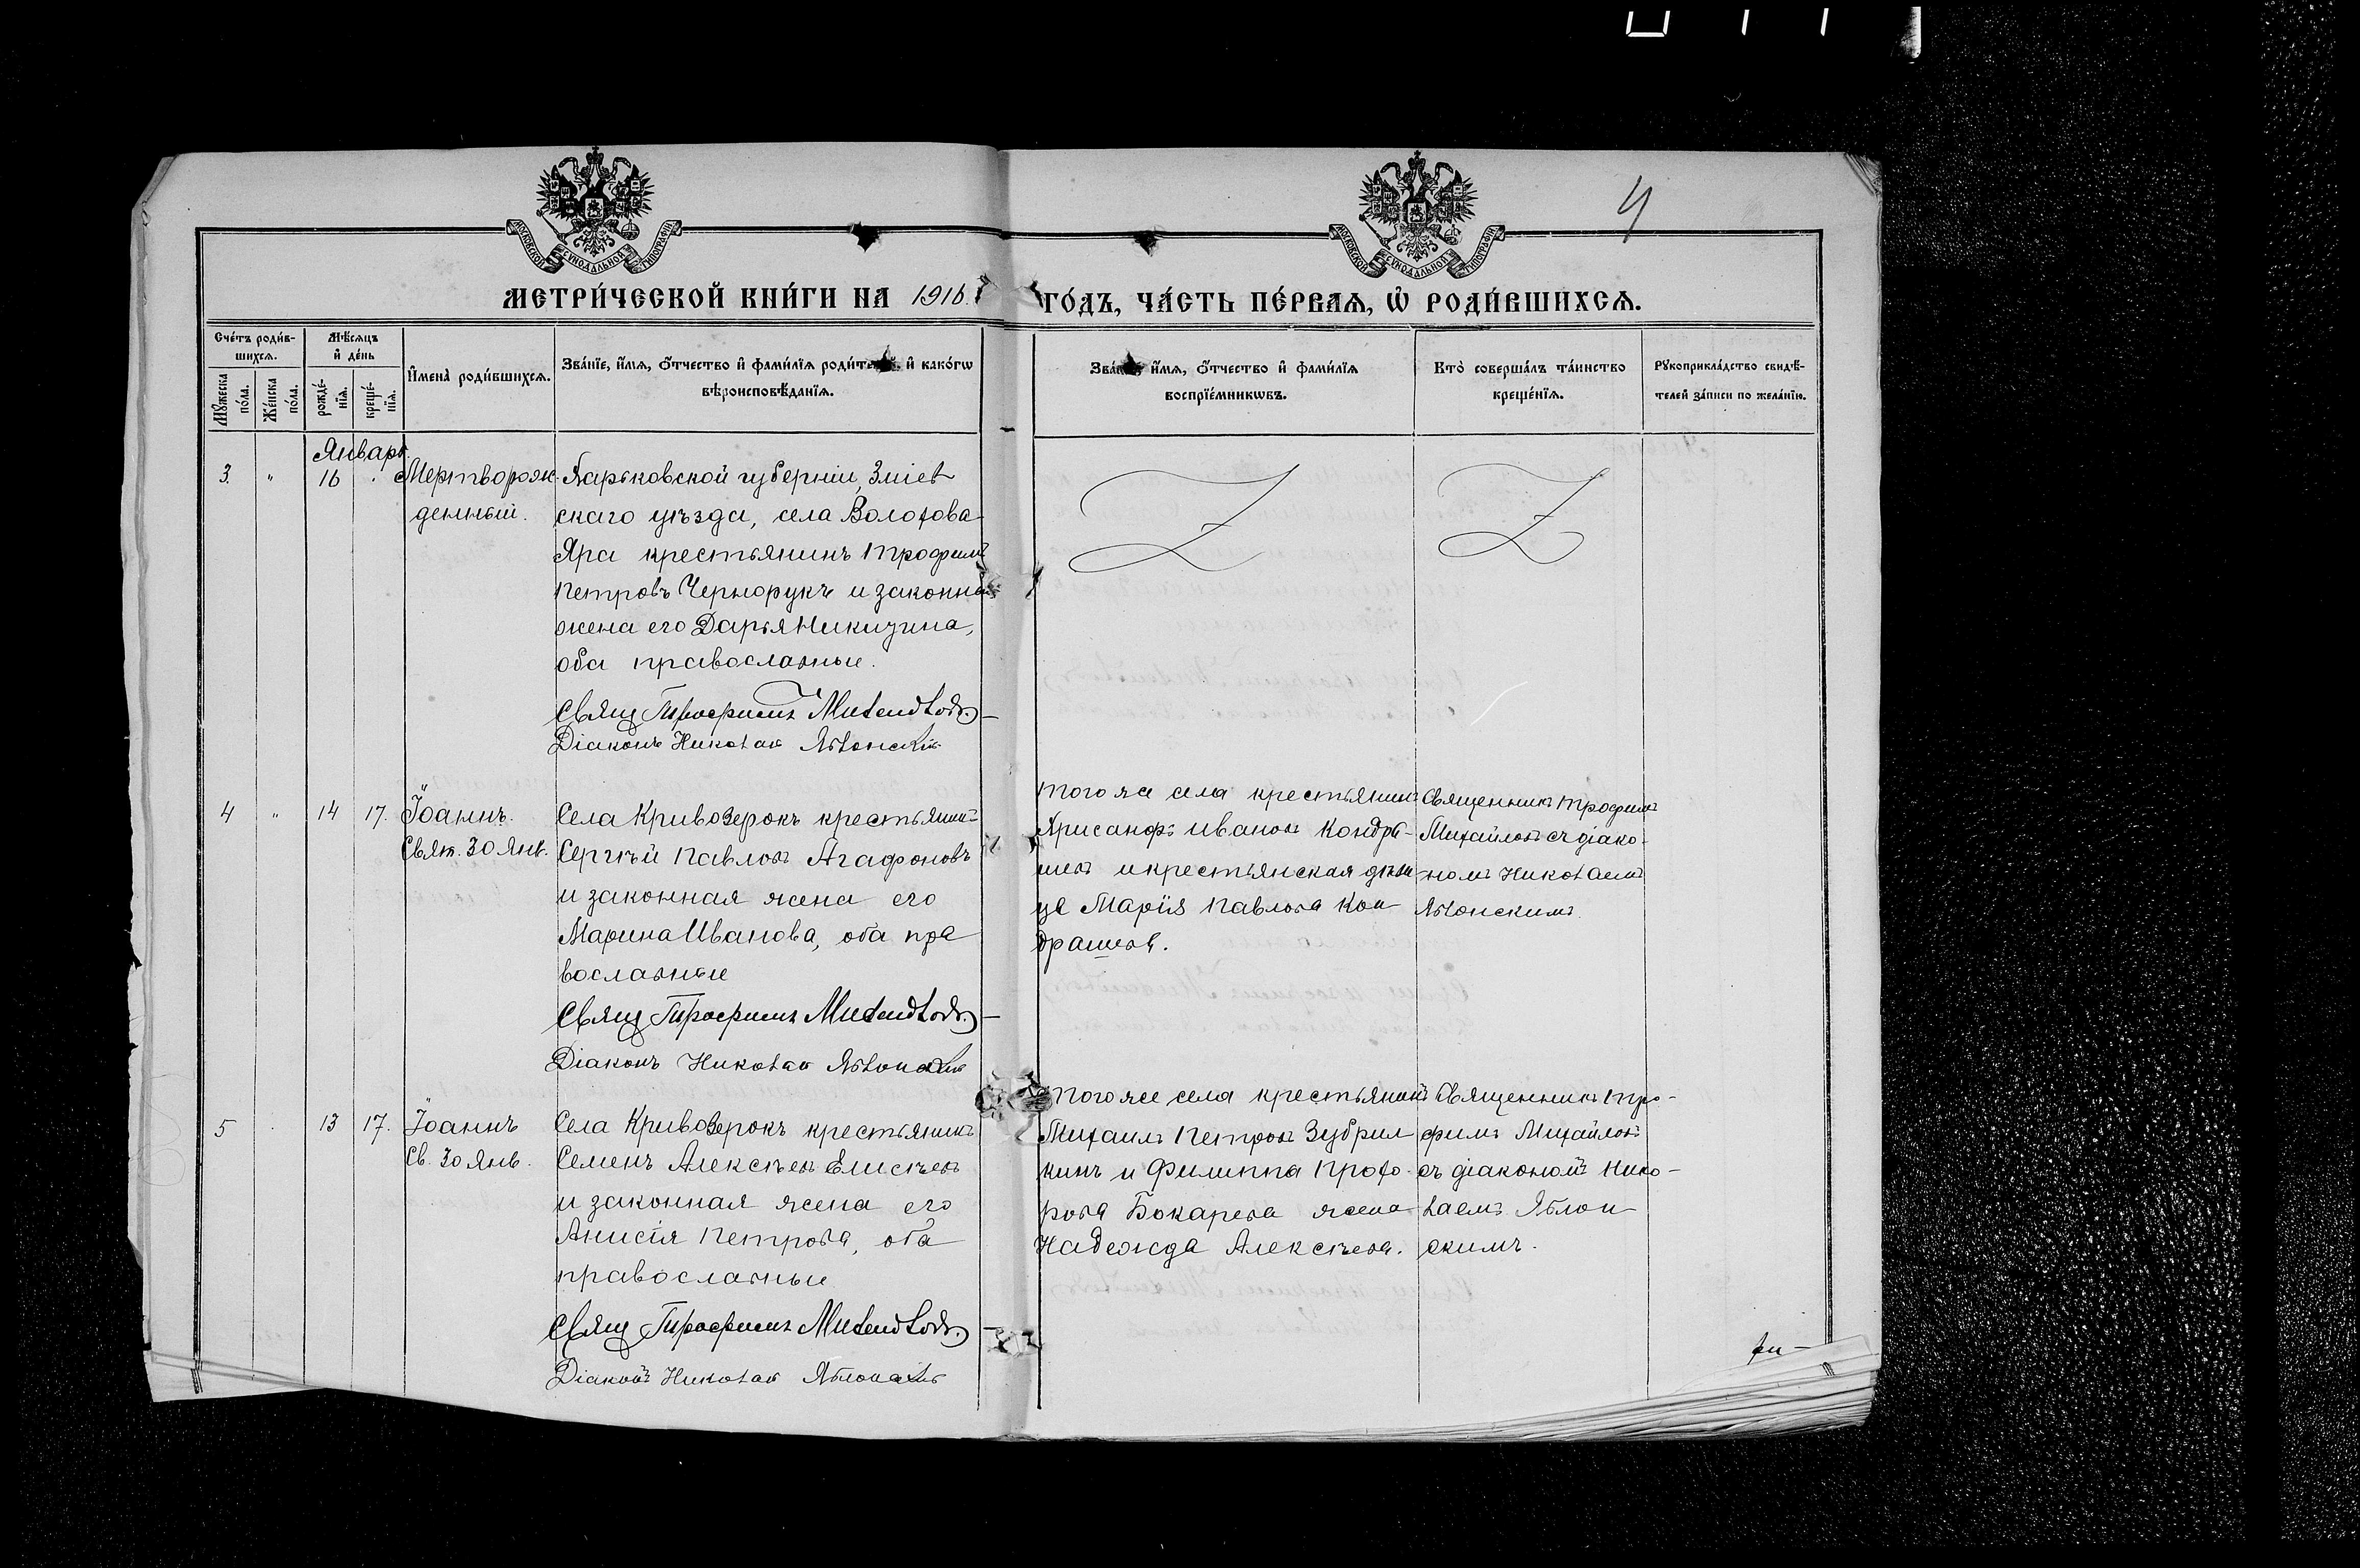 4
МОСКОВСКОЙ СѴНОДАЛЬНОЙ ТИПОГРАФІИ
МОСКОВСКОЙ СѴНОДАЛЬНОЙ ТИПОГРАФІИ
МЕТРИ́ЧЕСКОЙ КНИ́ГИ НА 1916
ГО́ДЪ, ЧА́СТЬ ПЕ́РВАѦ, Ѡ҆ РОДИ́ВШИХСѦ.
Сче́тъ роди́в-
шихсѧ.
Мꙋ́жеска по́ла.
Же́нска по́ла.
Мѣ́сѧцъ
и҆ де́нь
рожде́-
нїѧ.
креще́-
нїѧ.
И҆мена̀ роди́вшихсѧ.
Зва́нїе, и҆́мѧ, ѻ҆́тчество и҆ фами́лїѧ роди́телей, и҆ како́гѡ
вѣроисповѣ́данїѧ.
Зва́нїе, и҆́мѧ, ѻ҆́тчество и҆ фами́лїѧ
воспрїе́мникѡвъ.
Кто̀ соверша́лъ та́инство
креще́нїѧ.
Рꙋкоприкла́дство свидѣ́-
телей за́писи по жела́нїю.
Январь.
3. " 16 . Мертворож
денный.
Харьковской губерніи, Зміев
скаго уѣзда, села Волохова
Яра крестьянинъ Трофимъ
Петровъ Чернорукъ и законная
жена его Дарья Никитина,
оба православные.
Свящ Трофимъ Михайловъ.
Діаконъ Николай Яблонскій
4 " 14 17. Іоаннъ.
Свят. 30 Янв.
Села Кривозерокъ крестьянинъ
Сергѣй Павловъ Агафоновъ
и законная жена его
Марина Иванова, оба пра
вославные
Свящ Трофимъ Михайловъ.
Діаконъ Николай Яблонскій
того же села крестьянинъ
Хрисанфъ Ивановъ Кондра-
шевъ и крестьянская дѣви
ца Марія Павлова Кон
драшева.
Священникъ Трофимъ
Михайловъ съ діако-
номъ Николаемъ
Яблонскимъ
5 . 13 17. Іоаннъ
Св. 30 Янв.
Села Кривозерокъ крестьянинъ
Семенъ Алексѣевъ Елисѣевъ
и законная жена его
Анисія Петрова, оба
православные
Свящ Трофимъ Михайловъ.
Діаконъ Николай Яблонскій
того же села крестьянинъ
Михаилъ Петровъ Зубрил
кинъ и Филиппа Прохо-
рова Бокарева жена
Надежда Алексѣева.
Священникъ Тро-
фимъ Михайловъ
съ діакономъ Нико-
лаемъ Яблон
скимъ.